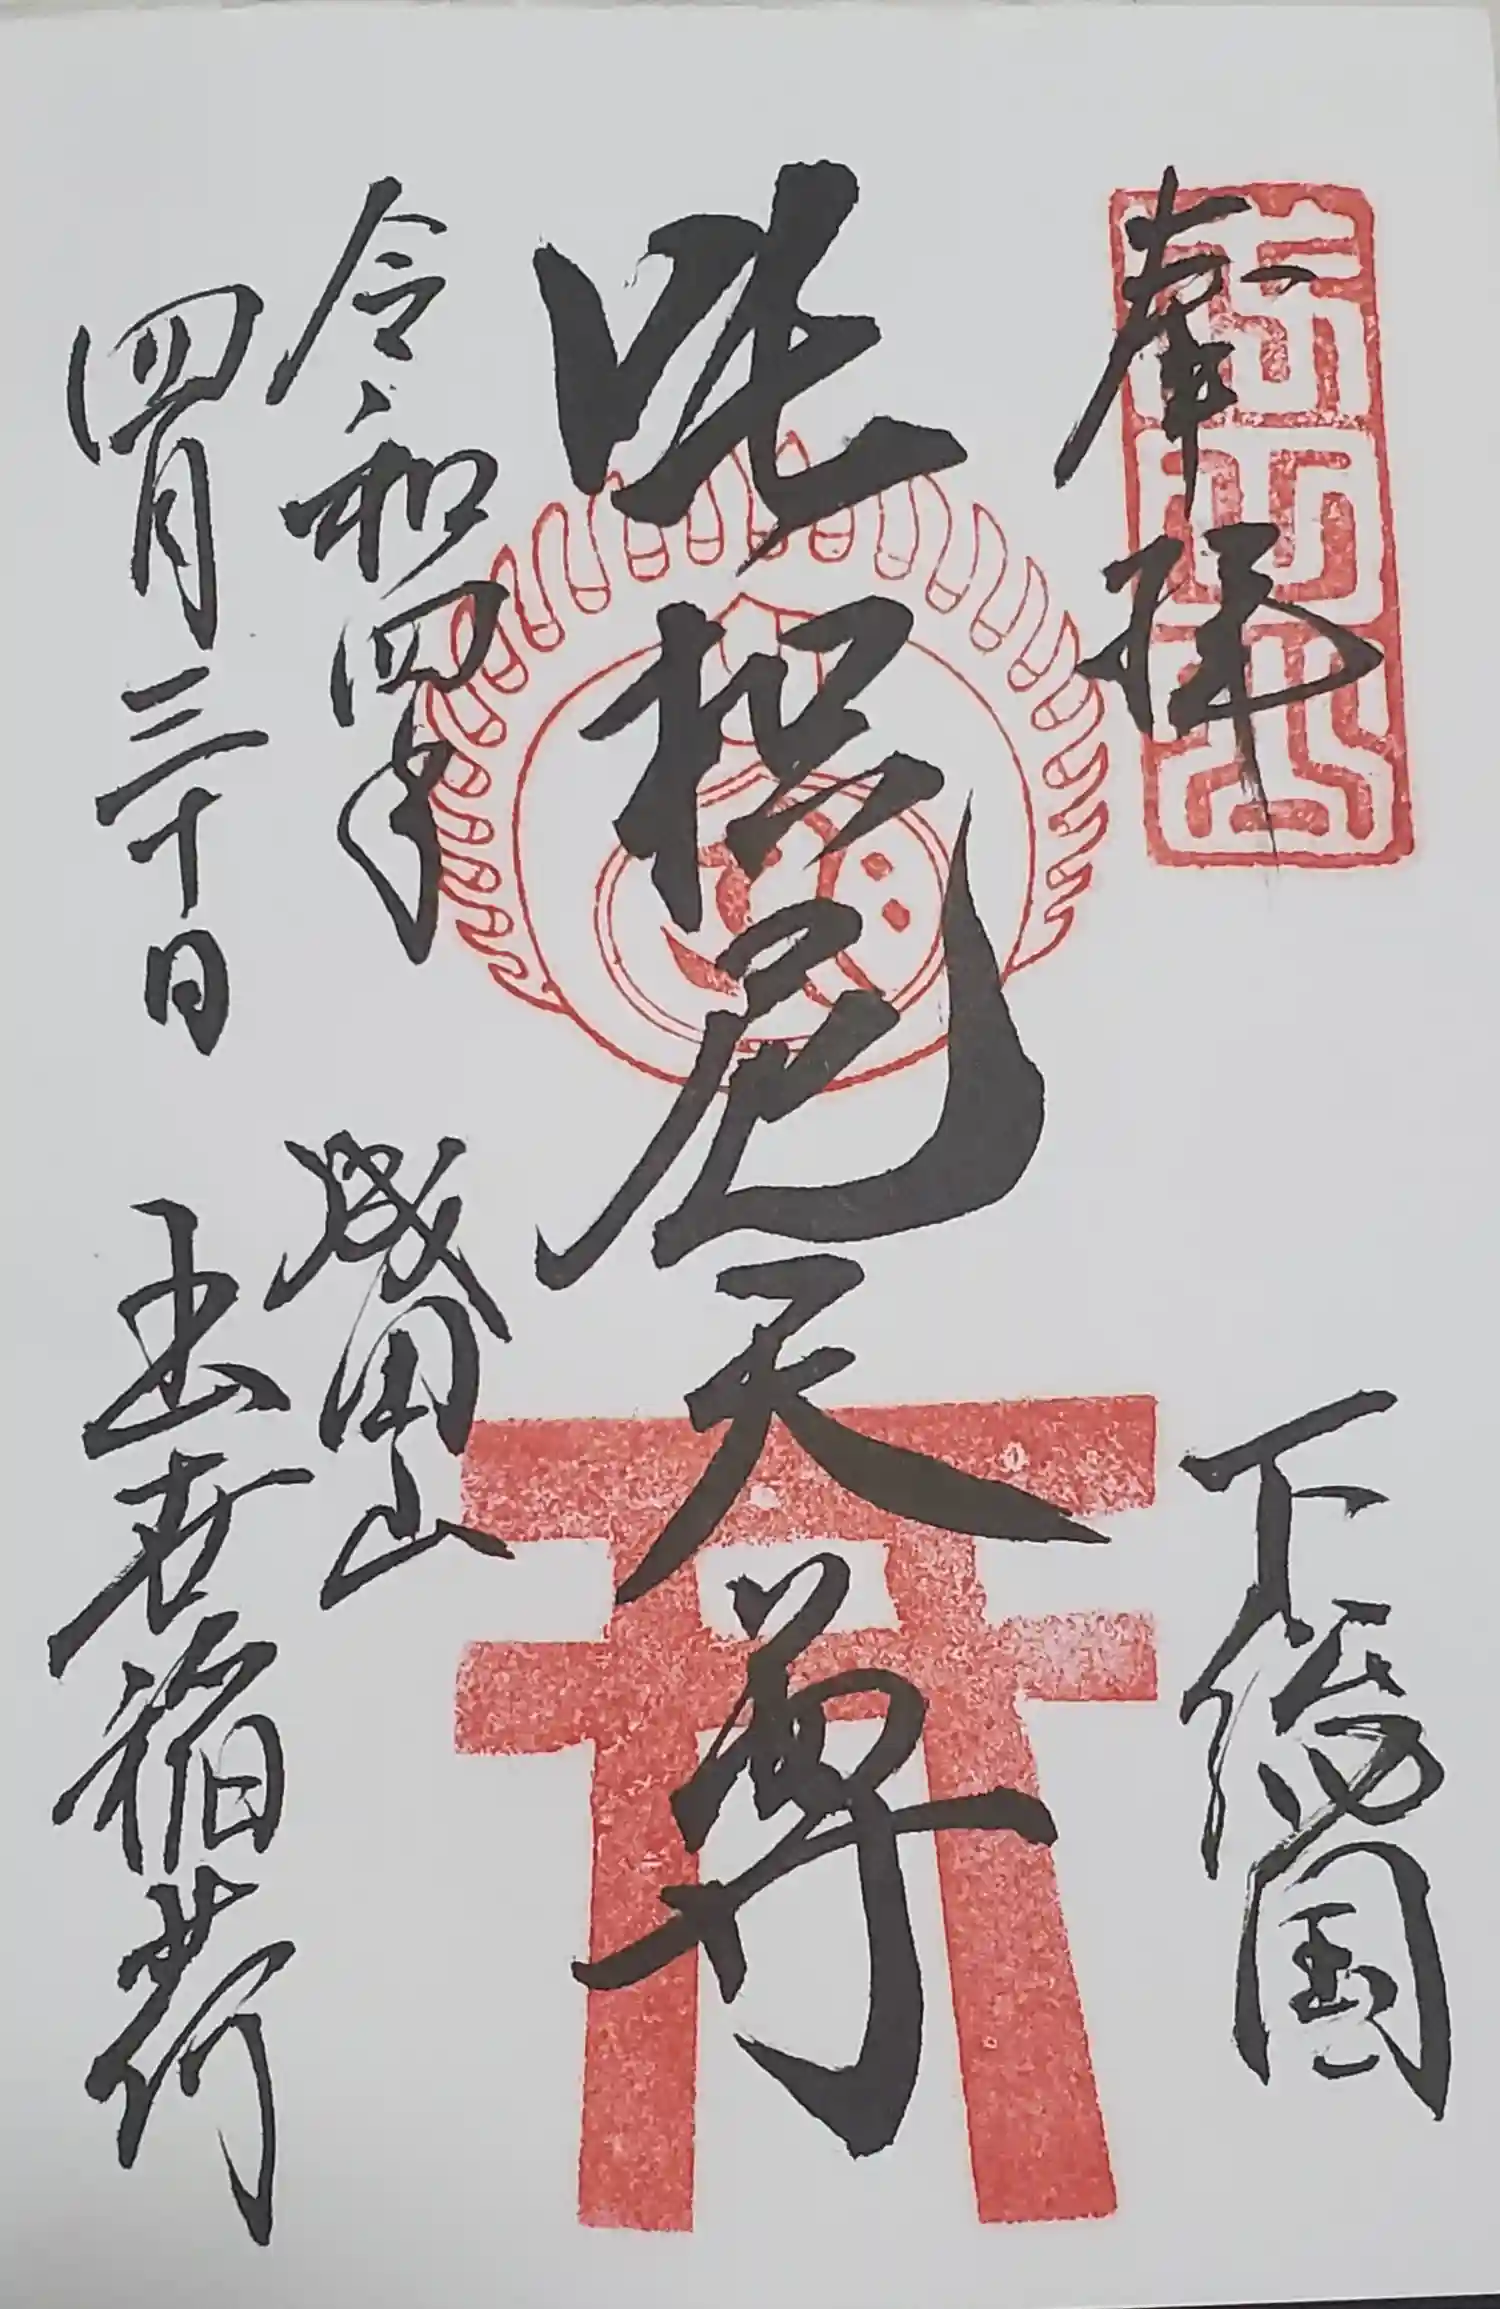 奉拝
下総国
吒枳尼天尊
令和四年
成田山
四月三十日
出世稲荷